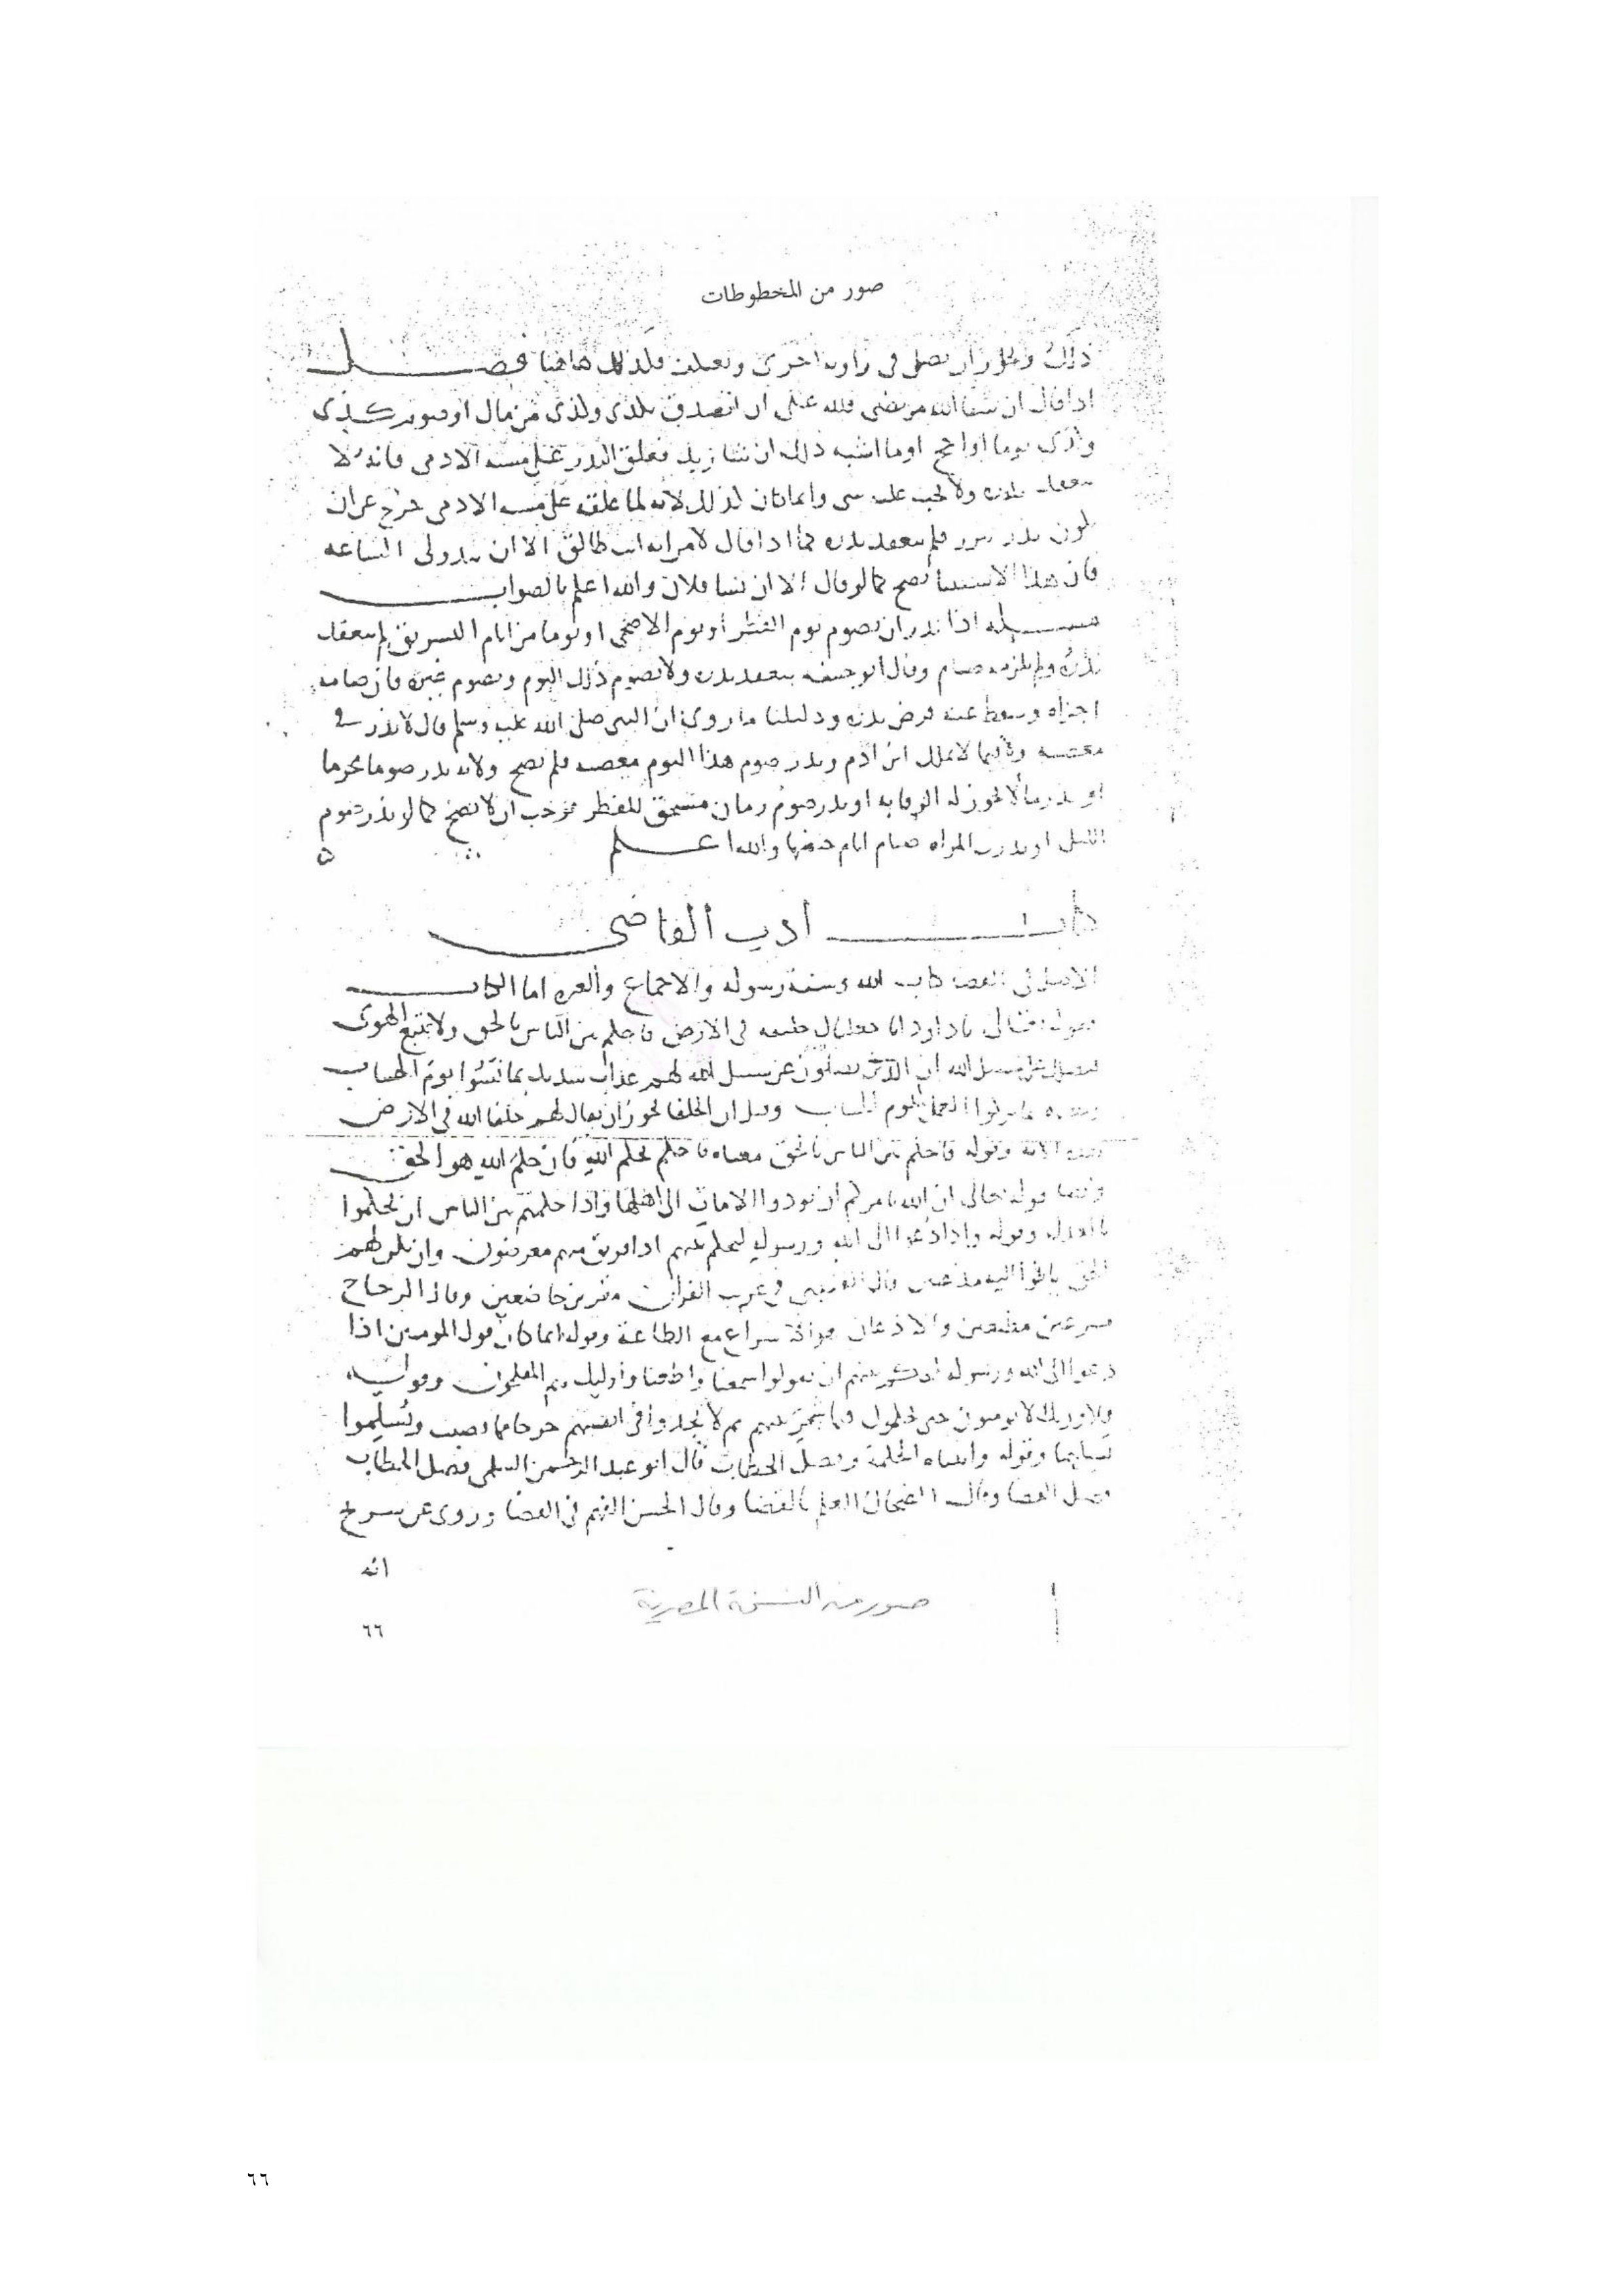 صور من المخطوطات
ذلك ويجوز ان يصلى فى زاوية اخرى فكذلك هاهنا فصل
اذا قال ان شفا الله مريضى فلله على ان اتصدق بكذى وكذى من مال او صوم كذى
وكذى يوما او احج او ما اشبه ذلك ان شا زيد فعلق النذر على مشيه الادمى فانه لا
ينعقد نذره ولا يجب عليه شى وانما كان كذلك لانه لما علقه على مشيه الادمى خرج عن ان
يكون نذر فلم ينعقد نذره كما اذا قال لامراته انت طالق الا ان يبدو لى الساعه
فان هذا الاستثنا يصح كما لو قال الا ان يشا فلان والله اعلم بالصواب
مسله اذا نذر ان يصوم يوم الفطر او يوم الاضحى او يوما من ايام التشريق لم ينعقد
نذره ولم يلزمه صيام وقال ابو حنيفه ينعقد نذره ولا يصوم ذلك اليوم ويصوم غيره فان صامه
اجزاه وسقط عنه فرض نذره ودليلنا ما روى ان النبى صلى الله عليه وسلم قال لا نذر فى
معصيه ولا فيما لا يملك ابن ادم ونذر صوم هذا اليوم معصيه فلم يصح ولانه نذر صوما محرما
او نذر ما لا يجوز له الوفا به او نذر صوم زمان مستحق للفطر فوجب ان لا يصح كما لو نذر صوم
الليل او نذرت المراه صيام ايام حيضها والله اعلم
كتاب ادب القاضى
الاصل فى القضا كتاب الله وسنة رسوله والاجماع والعبره اما الكتاب
فقوله تعالى يا داود انا جعلناك خليفه فى الارض فاحكم بين الناس بالحق ولا تتبع الهوى
فيضلك عن سبيل الله ان الذين يضلون عن سبيل الله لهم عذاب شديد بما نسوا يوم الحساب
بما تركوا العمل ليوم الحساب وقيل ان الخلفا يجوز ان يقال لهم خلفا الله فى الارض
لهذه الايه وقوله فاحكم بين الناس بالحق معناه فاحكم بحكم الله فان حكم الله هو الحق
وايضا قوله تعالى ان الله يامركم ان تودوا الامانات الى اهلها واذا حكمتم بين الناس ان تحكموا
بالعدل وقوله واذا دعوا الى الله ورسوله ليحكم بينهم اذا فريق منهم معرضون وان يكن لهم
الحق ياتوا اليه مذعنين قال فى غريب القران مقرين خاضعين وقال الزجاج
مسرعين مطيعين والاذعان هو الاسراع مع الطاعة وقوله انما كان قول المومنين اذا
دعوا الى الله ورسوله ليحكم بينهم ان يقولوا سمعنا واطعنا واوليك هم المفلحون وقوله
فلا وربك لا يومنون حتى يحكموك فيما شجر بينهم ثم لا يجدوا فى انفسهم حرجا مما قضيت ويسلموا
تسليما وقوله واتيناه الحكمة وفصل الخطاب قال ابو عبد الرحمن السلمى فصل الخطاب
فصل القضا وقال العلم بالقضا وقال الحسن الفهم فى القضا وروى عن شريح
انه
صور من النسخة المصرية
٦٦
٦٦